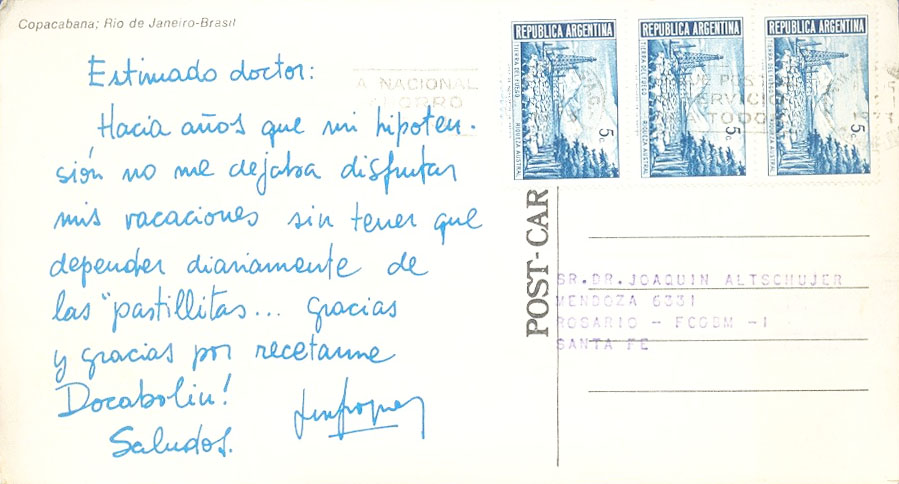 Copacabana; Rio de Janeiro-Brasil
Estimado doctor:
Hacia años que mi hipoten-
sión no me dejaba disfrutar
mis vacaciones sin tener que
depender diariamente de
las "pastillitas... gracias
y gracias por recetarme
Docabolin!
Saludos.
A NACIONAL
AHORRO
REPUBLICA ARGENTINA
TIERRA DEL FUEGO
RIQUEZA AUSTRAL
5c
REPUBLICA ARGENTINA
TIERRA DEL FUEGO
RIQUEZA AUSTRAL
5c
REPUBLICA ARGENTINA
TIERRA DEL FUEGO
RIQUEZA AUSTRAL
5c
SERVICIO
A TODO
POST-CAR
SR.DR.JOAQUIN ALTSCHUJER
MENDOZA 6331
ROSARIO - FCGBM -1
SANTA FE